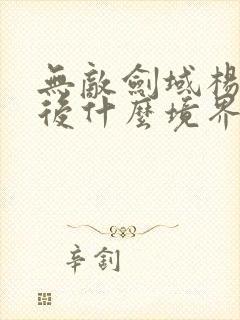 無敵劍域楊
後什麼境界
辛劄